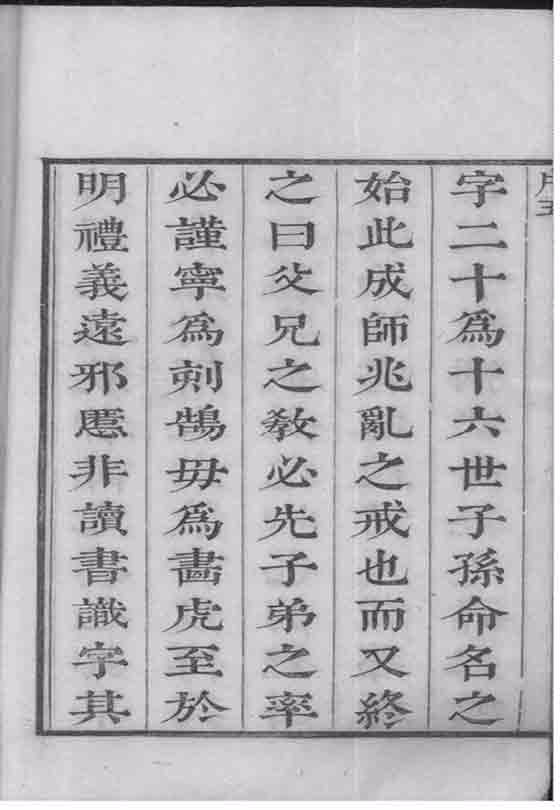 字二十爲十六世子孫命名之
始此成師兆亂之戒也而又終
之曰父兄之敎必先子弟之率
必謹寧爲刻鵠毋爲畵虎至於
明禮義遠邪慝非讀書識字其